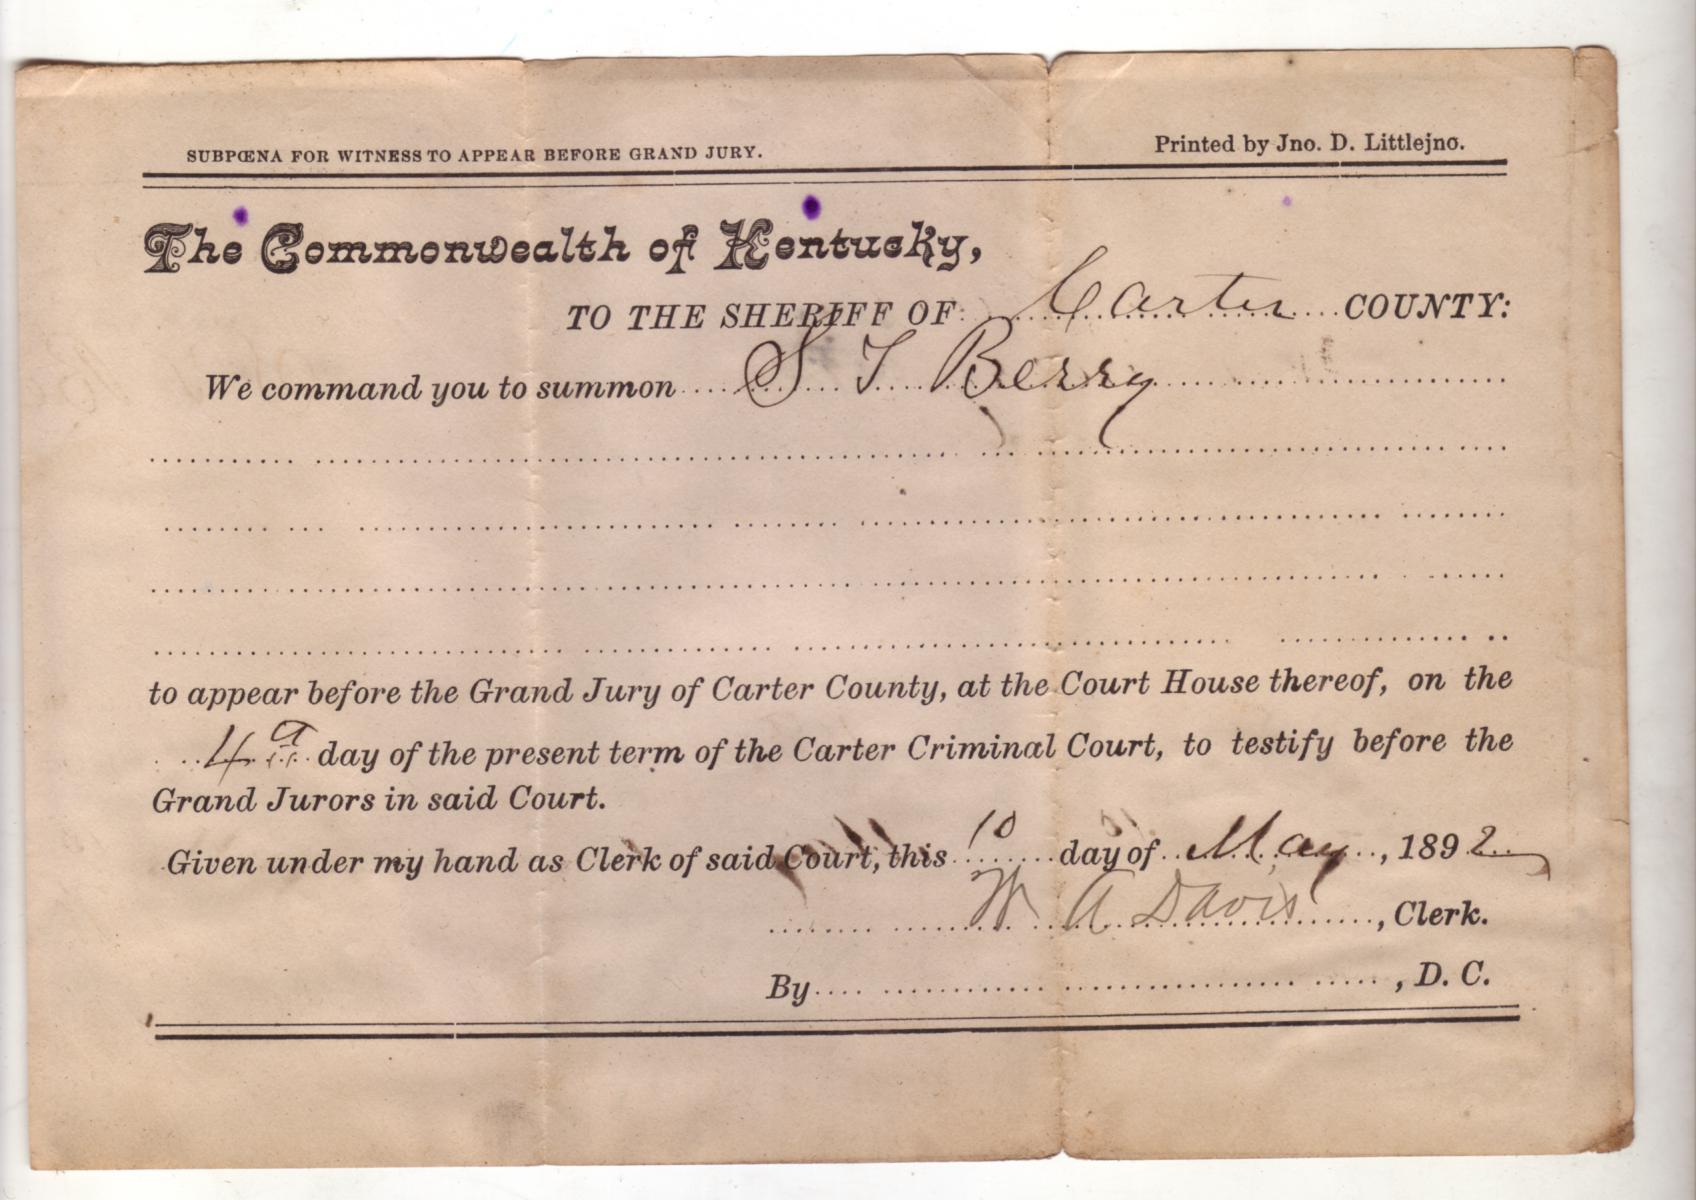 SUBPŒNA FOR WITNESS TO APPEAR BEFORE GRAND JURY. Printed by Jno. D. Littlejno.
The Commonwealth of Kentucky,
TO THE SHERIFF OF Carter COUNTY:
We command you to summon S T Berry
to appear before the Grand Jury of Carter County, at the Court House thereof, on the
4 day of the present term of the Carter Criminal Court, to testify before the
Grand Jurors in said Court.
Given under my hand as Clerk of said Court, this 10 day of May, 1892
W A Davis, Clerk.
By , D. C.